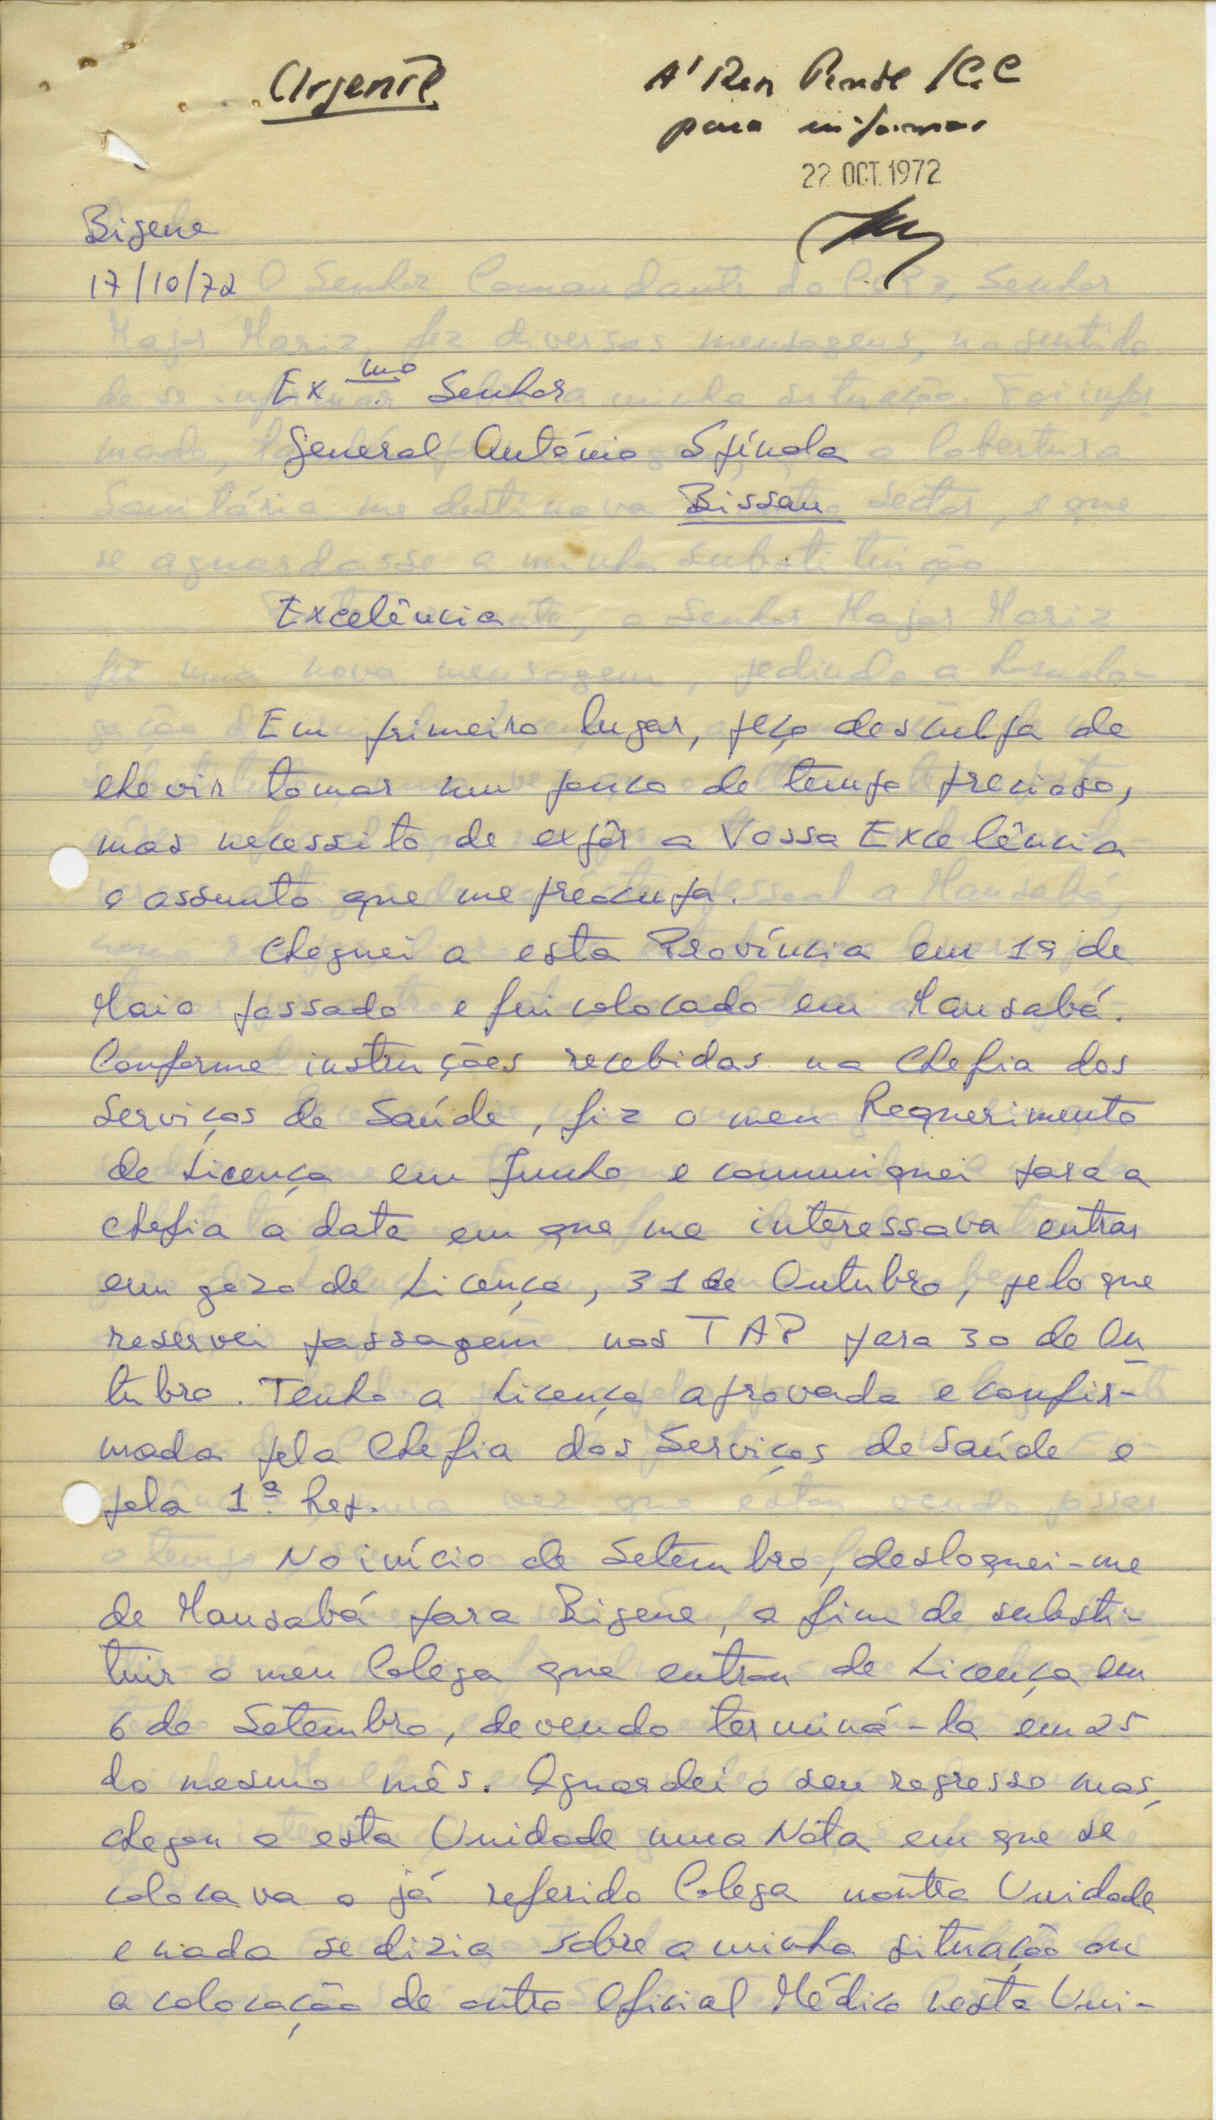 Urgente
A' Rep
para informar
22 OCT. 1972
Bigene
17/10/72
Ex.mo Senhor
General António Spínola
Bissau
Excelência
Em primeiro lugar, peço desculpa de
lhe vir tomar um pouco de tempo precioso,
mas necessito de expôr a Vossa Excelência
o assunto que me preocupa.
Cheguei a esta Província em 19 de
Maio passado e fui colocado em Mansabá.
Conforme instruções recebidas na Chefia dos
Serviços de Saúde, fiz o meu Requerimento
de Licença em Junho e comuniquei para a
Chefia a data em que me interessava entrar
em gozo de Licença, 31 de Outubro, pelo que
reservei passagem nos TAP para 30 de Ou
tubro. Tenho a Licença aprovada e confir-
mada pela Chefia dos Serviços de Saúde e
pela 1ª. Rep.
No início de Setembro, desloquei-me
de Mansabá para Bigene, a fim de substi-
tuir o meu Colega que entrou de Licença em
6 de Setembro, devendo terminá-la em 25
do mesmo mês. Aguardei o seu regresso mas,
chegou a esta Unidade uma Nota em que se
colocava o já referido Colega noutra Unidade
e nada se dizia sobre a minha situação ou
a colocação de outro Oficial Médico nesta Uni-